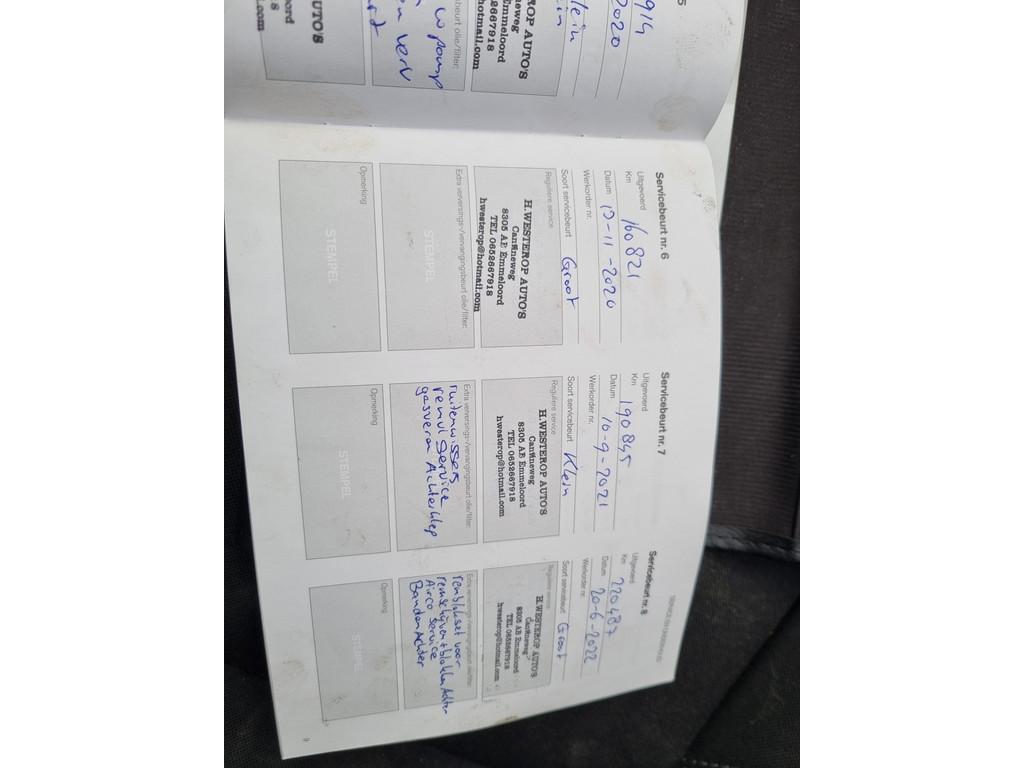 914
2020
lein
H. WESTEROP AUTO'S
Canfineweg
Emmeloord
0652667918
hotmail.com
w pomp
en verv
AUTO'S
oord
.com
Servicebeurt nr. 6
Uitgevoerd
Km 160821
Datum 12-11-2020
Werkorder nr.
Soort servicebeurt Groot
Reguliere service
H.WESTEROP AUTO'S
Canfineweg
8305 AE Emmeloord
TEL 0652667918
hwesterop@hotmail.com
Extra verversings-/vervangingsbeurt olie/filter:
STEMPEL
Opmerking
STEMPEL
Servicebeurt nr. 7
Uitgevoerd
Km 190845
Datum 10-9-2021
Werkorder nr.
Soort servicebeurt Klein
Reguliere service
H.WESTEROP AUTO'S
Canfineweg
8305 AE Emmeloord
TEL 0652667918
hwesterop@hotmail.com
Extra verversings-/vervangingsbeurt olie/filter:
ruitenwissers
remvl Service
gasveren Achterklep
Opmerking
STEMPEL
SERVICE EN ONDERHOUD
Servicebeurt nr. 8
Uitgevoerd
Km 220487
Datum 20-6-2022
Werkorder nr.
Soort servicebeurt Groot
Reguliere service
H.WESTEROP AUTO'S
Canfineweg
8305 AE Emmeloord
TEL 0652667918
hwesterop@hotmail.com
Extra verversings-/vervangingsbeurt olie/filter:
remblokset voor
remschijven+blokken Achter
Airco Service
Banden Achter
Opmerking
STEMPEL
9